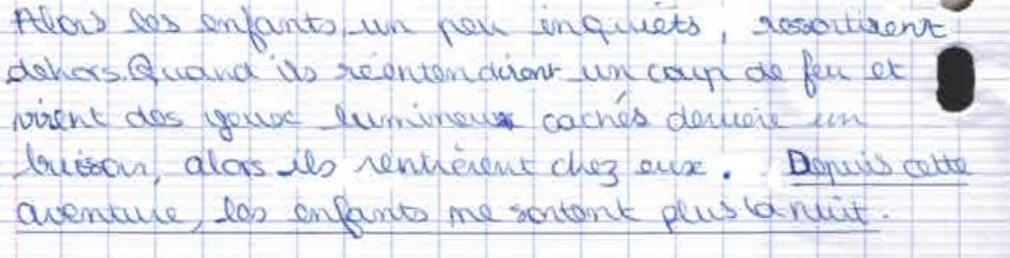 Alors les enfants, un peu inquiets, ressortirent
dehors. Quand ils réentendirent un coup de feu et
virent des yeux lumineux cachés derrière un
buisson, alors ils rentrèrent chez eux. Depuis cette
aventure, les enfants ne sortent plus la nuit.